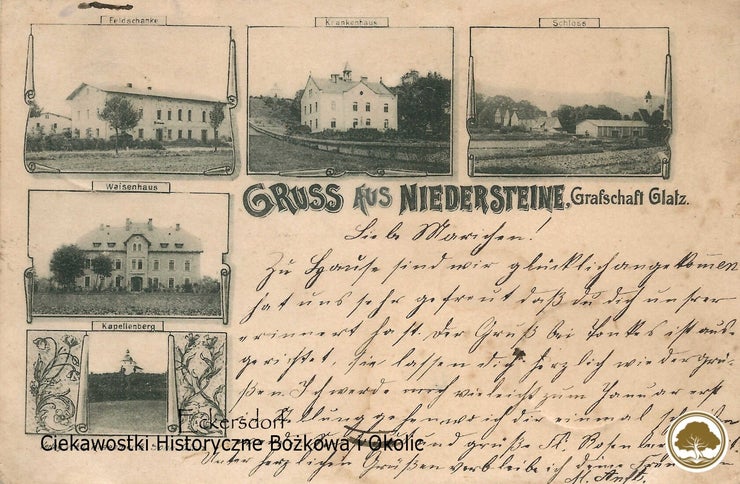 Feldschänke
Krankenhaus
Schloss
Waisenhaus
GRUSS AUS NIEDERSTEINE, Grafschaft Glatz.
Kapellenberg
Liebe Marichen!
Zu Hause sind wir glücklich angekom̄en
hat uns sehr gefreut daß du dich unsrer
erinnert hast. Der Gruß bei ist aus-
gerichtet, sie lassen dich herzlich wieder grü-
ßen. Ich werde vieleicht zum Januar erst
gehen wo ich dir einmal
grüße Fr.
Unter herzlichen Grüßen verbleibe ich deine
M.
Eckersdorf
Ciekawostki Historyczne Bożkowa i Okolic